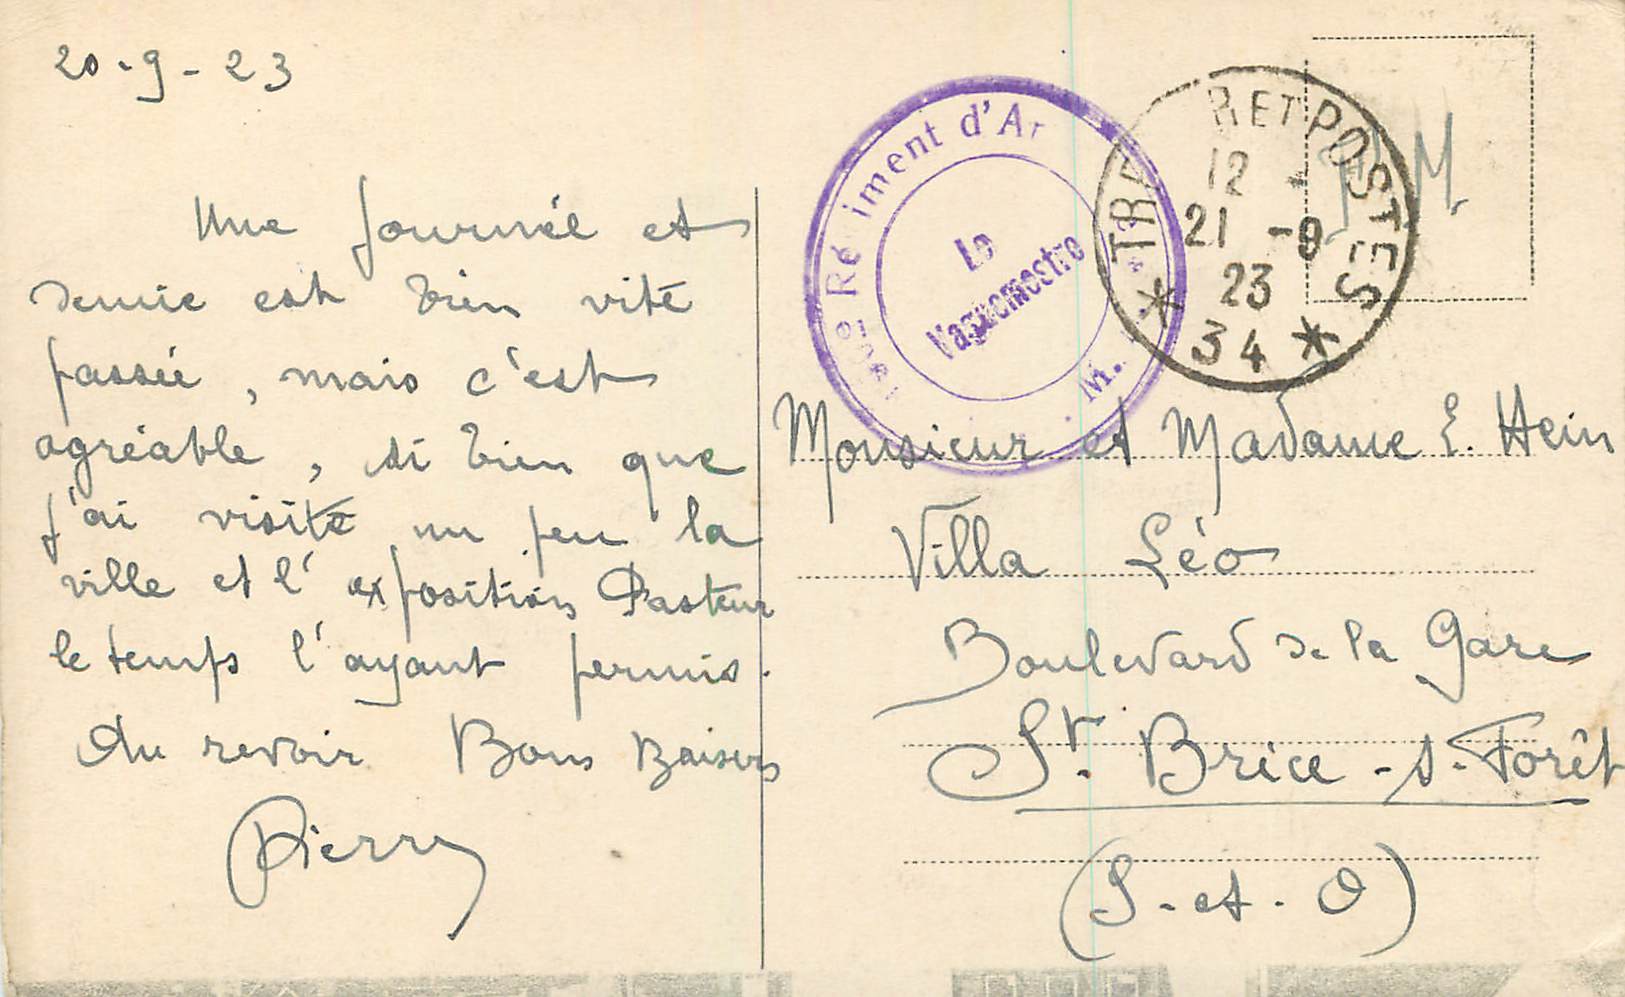 20-9-23
Une journée et
demie est bien vite
passée, mais c'est
agréable, si bien que
j'ai visité un peu la
ville et l'exposition Pasteur
le temps l'ayant permis.
Au revoir Bons Baisers
Pierre
Régiment d'Ar
Le
Vaguemestre
TRE R ET POSTES
12 -
21 -9
23
* 34 *
F.M.
Monsieur et Madame E. Hein
Villa Léo
Boulevard de la Gare
St. Brice-s.-Forêt
(S.-et.-O)